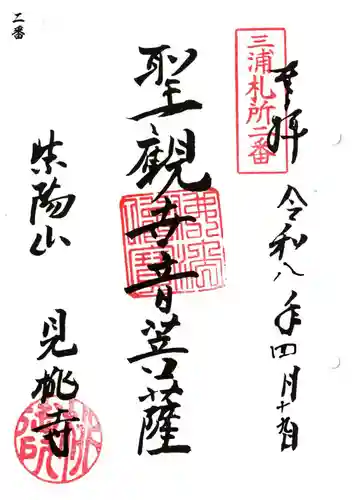 二番
三浦札所二番
奉拝
令和八年四月十九日
聖観世音菩薩
紫陽山
見桃寺